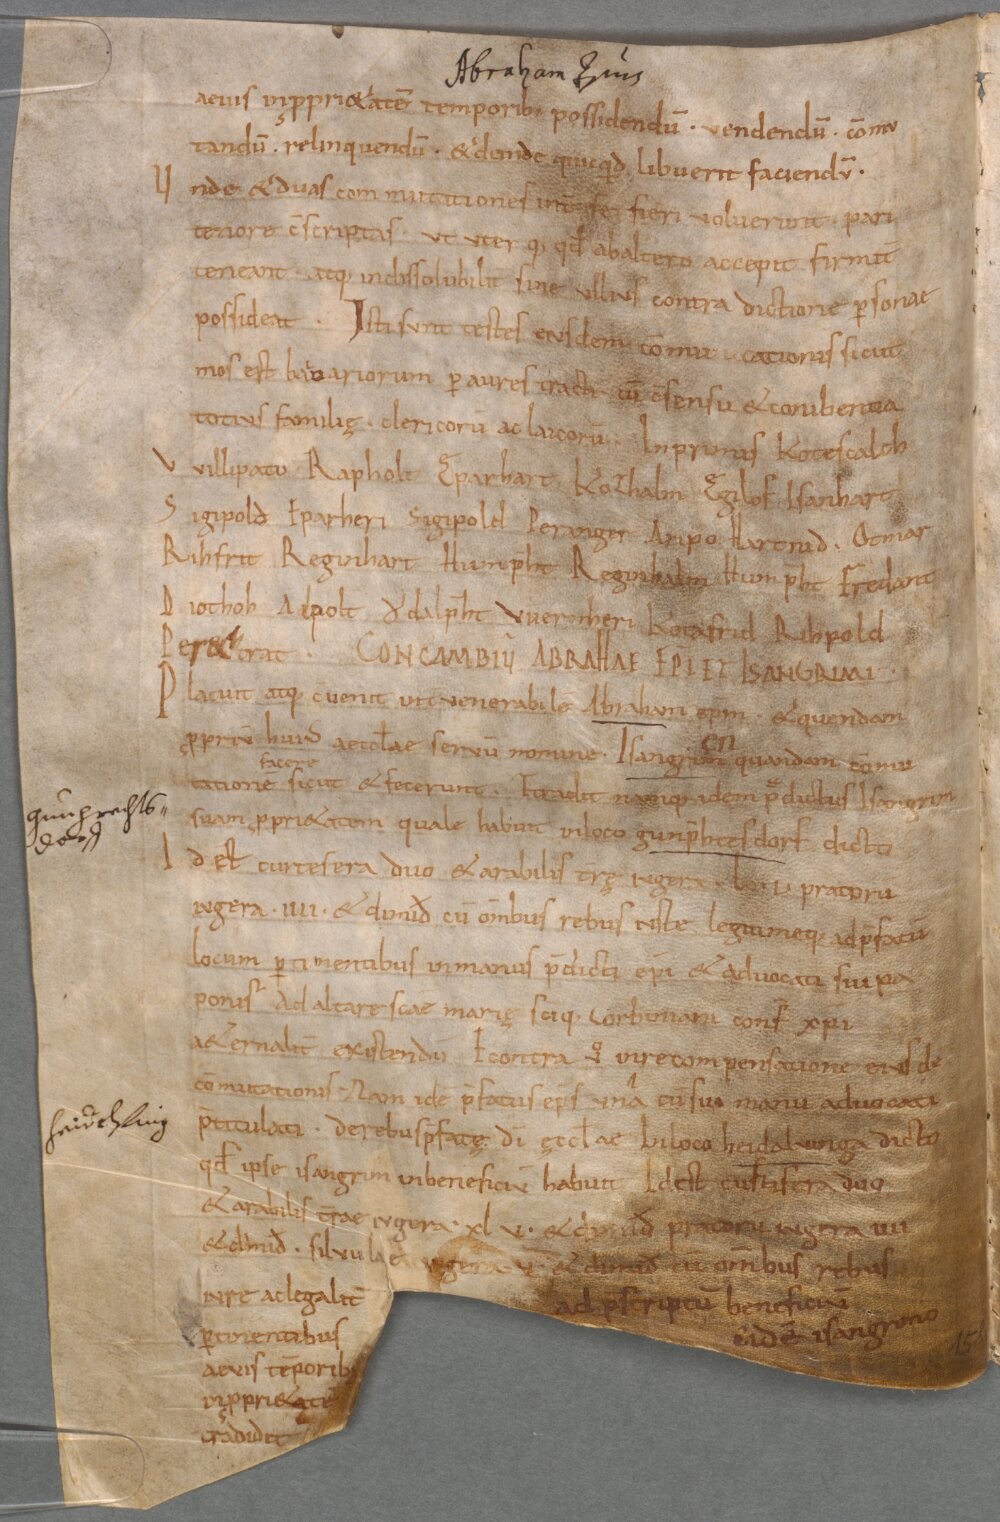 Abraham
aeuis inpprietatē temporibꝫ possidendū · vendendū · cōmu
tandū · relinquendū · & deinde quicqd libuerit faciendū ·
Unde & duas commutationes fieri voluerunt · pari
tenore c̄scriptas · ut uterq; qd ab altero accepit firmit̄
teneant · atq; indissolubilit̄ sine ullius contra dictione psonae
possideat · Isti sunt testes eiusdem cōmutationis sicut
mos est bauuariorum p aures tracti cū c̄sensu & conibentia
totius familię · clericorū ac laicorū · Inprimis Kotescalch
Vuillipato Rapholt Eparhart Kozhalm Egilof Isanhart
Sigipold Eparheri Sigipold Peranger Aripo Hartnid · Otmar
Rihfrit Reginhart Humpht Reginhalm Humpht Fridant
Diothoh Adpolt Ydalpht Vuernheri Kotafrid Rihpold
Perehtrat · CONCAMBIŪ ABRAHAE EPI ET ISANGRIMI ·
Placuit atq; c̄uenit int venerabilē Abraham epm̄ · & quendam
ppriū huiꝰ aecclae seruū nomine · Isangrim en quandam cōmu
facere
tationē sicut & fecerunt · Tradit namq; idem p̄dictus Isangrim
suam pprietatem quale habuit in loco gunphtesdorf dicto
gunprechts-
dorf
Id est curtifera duo & arabilis trę iugera · lx · v pratorū
iugera · IIII · & dimid cū omibus rebus iuste legitimeq; ad p̄fatū
locum ptinentibus in manus p̄dicti epi & aduocati sui pa
ponis Ad altare scae marię sciq; corbiniani conf xpi
aeternalit̄ existendū Econtra in recompensatione eius de
cōmutationis · Nam idē p̄fatus eps una cū sui manu aduocati
p̄titulati · de rebus p̄fatę di ęcclae in loco heidaluuinga dicto
heidthling
qd ipse isangrim in beneficiū habuit Id est curtifera duo
& arabilis trae iugera · xl v · & dimid pratorū iugera IIII
& dimid · siluulae iugera · v & dimid cū omibus rebus
iure ac legalit̄ ad p̄scriptū beneficiū
ptinentibus eidē isangrimo
aeuis tēporibꝫ
inpprietatē
tradidit